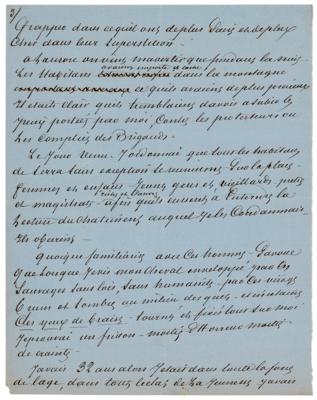 2/
frapper dans ce qu'ils ont de plus
cher dans leur superstition.
a l'aurore on vint m'avertir que pendant la nuit
les habitans avaient emporté dans la montagne
ce qu'ils avaient de plus précieux
Il était clair qu'ils tremblaient d'avoir à subir les
peines portées par moi contre les protecteurs ou
les complices des Brigands.
Le jour venu j'ordonnai que tous les habitans
de Serra sans exception se réunissent sur la place
femmes et enfants jeunes gens et vieillards prêtres
et magistrats afin qu'ils eussent à entendre la
lecture du châtiment auquel je les condamnais
Ils obéirent
quoique familiarisé avec ces hommes j'avoue
que lorsque je vis mon cheval enveloppé par les
sauvages sans lois, sans humanité par ces visages
ces yeux de braise tournés en tous sur moi
J'éprouvai un frisson
de crainte
J'avais 32 ans alors J'étais dans toute la force
de l'age, dans tout l'éclat de la jeunesse J'avais